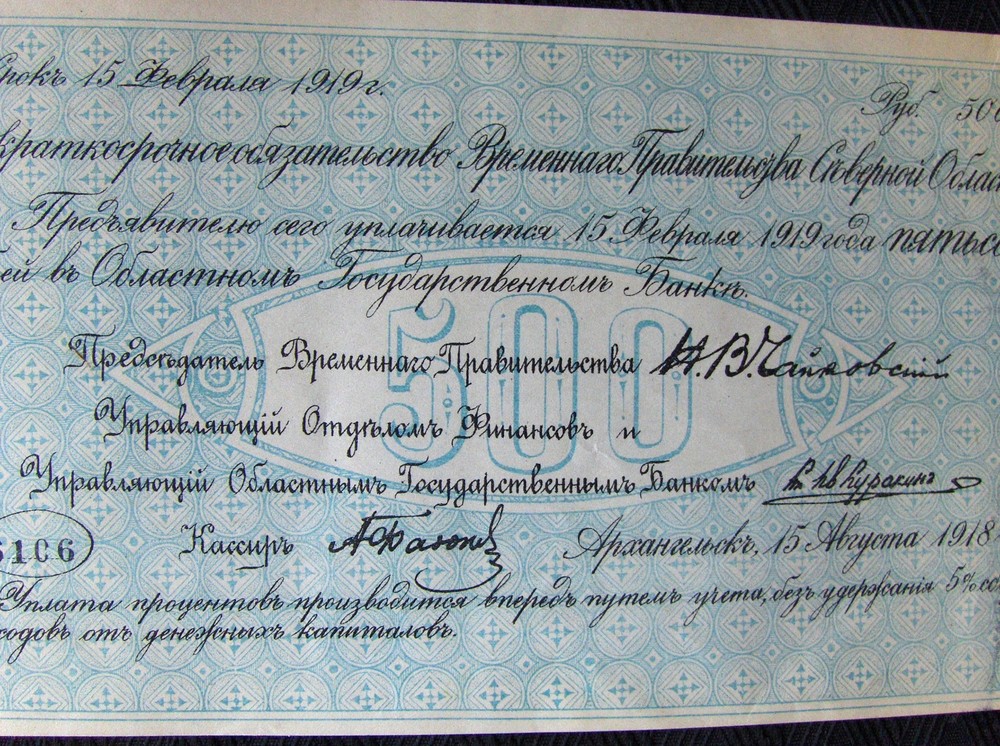 Срокъ 15 Февраля 1919 г.
Руб. 500
краткосрочное обязательство Временнаго Правительства Сѣверной Облас
Предъявителю сего уплачивается 15 Февраля 1919 года пятьсо
лей въ Областномъ Государственномъ Банкѣ.
500
Предсѣдатель Временнаго Правительства Н. В. Чайковскій
Управляющій Отдѣломъ Финансовъ и
Управляющій Областнымъ Государственнымъ Банкомъ Куракинъ
6106 Кассиръ Архангельскъ, 15 Августа 1918
Уплата процентовъ производится впередъ путемъ учета, безъ удержанія 5% со
ходовъ отъ денежныхъ капиталовъ.